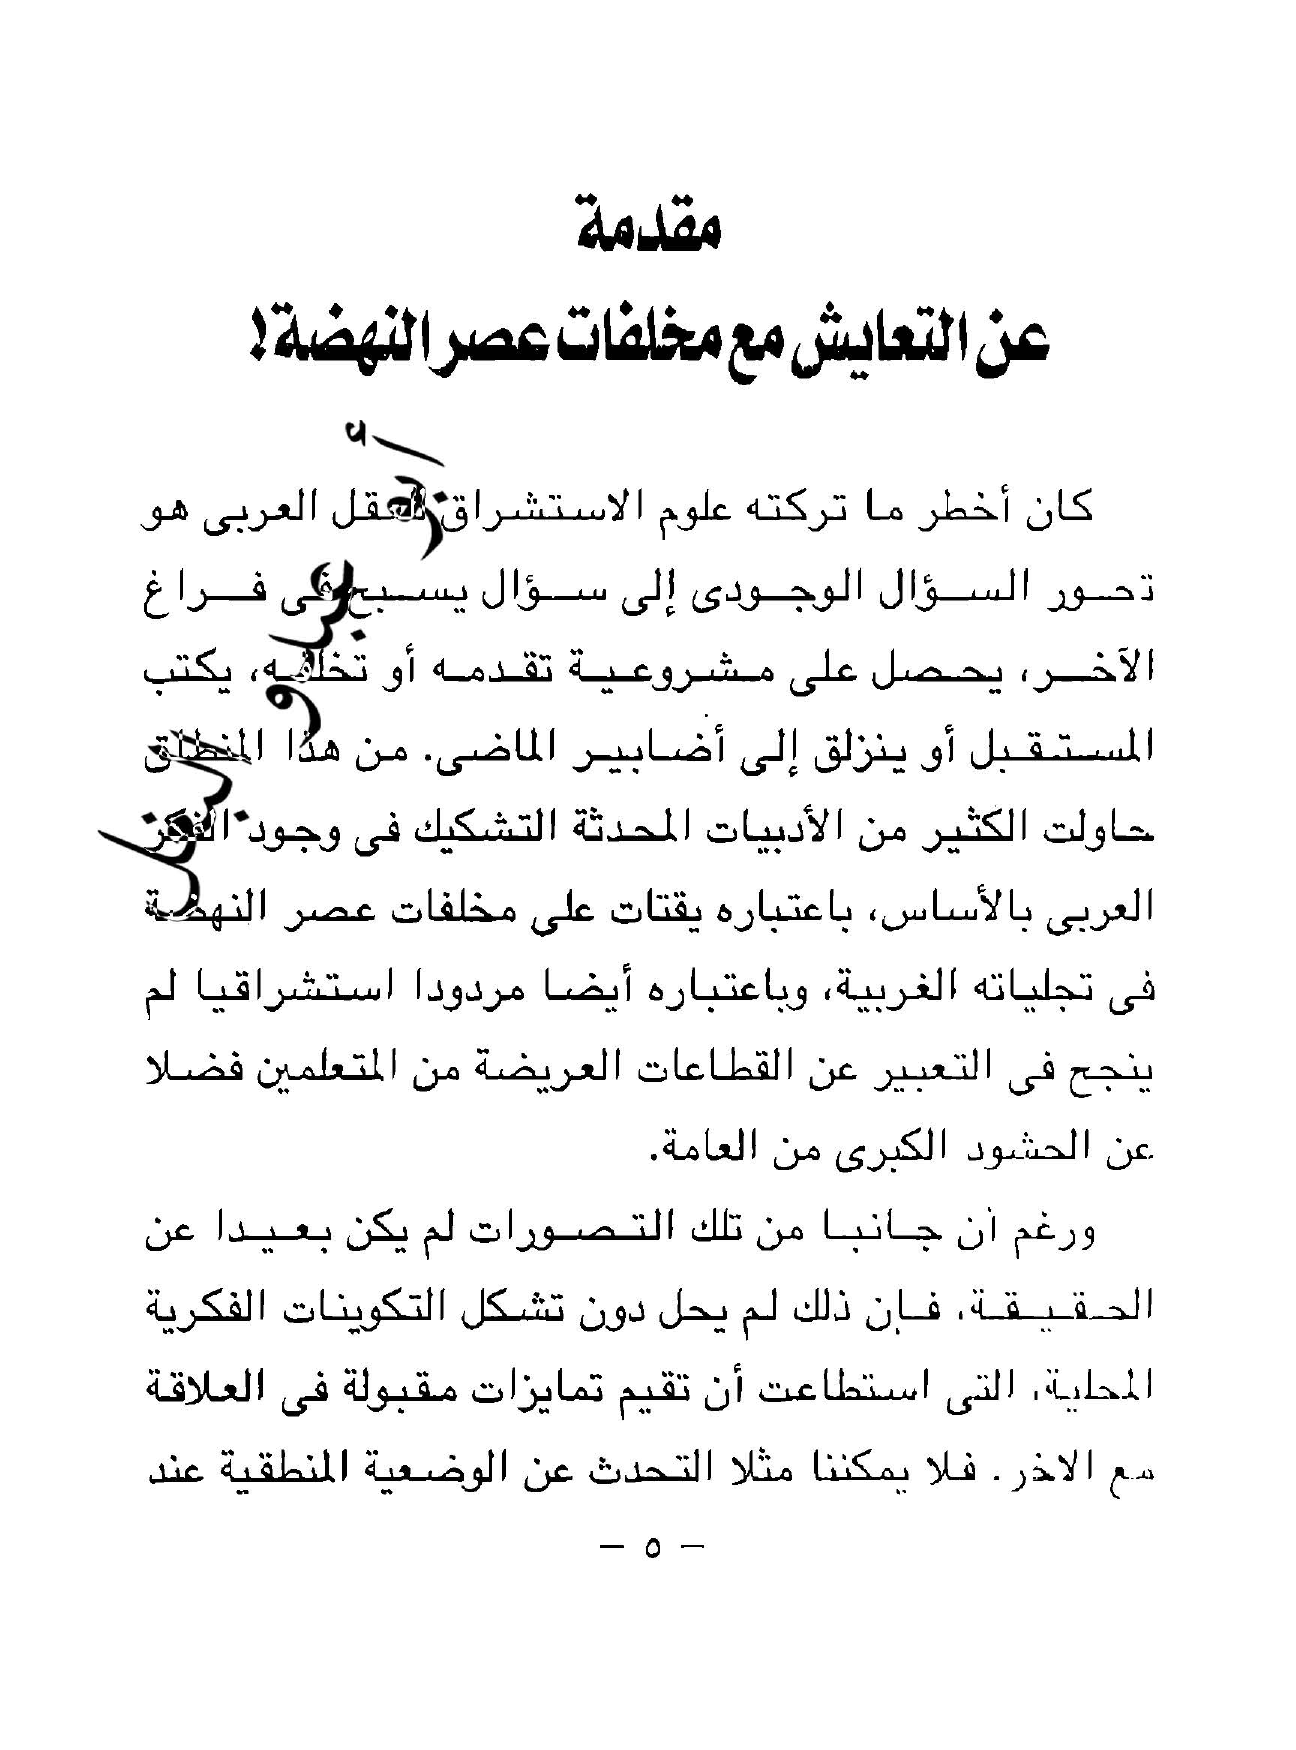 مقدمة
عن التعايش مع مخلفات عصر النهضة!
كان أخطر ما تركته علوم الاستشراق للعقل العربى هو
تحور السؤال الوجودى إلى سؤال يسبح فى فراغ
الآخر، يحصل على مشروعية تقدمه أو تخلفه، يكتب
المستقبل أو ينزلق إلى أضابير الماضى. من هذا المنطلق
حاولت الكثير من الأدبيات المحدثة التشكيك فى وجود الفكر
العربى بالأساس، باعتباره يقتات على مخلفات عصر النهضة
فى تجلياته الغربية، وباعتباره أيضا مردودا استشراقيا لم
ينجح فى التعبير عن القطاعات العريضة من المتعلمين فضلا
عن الحشود الكبرى من العامة.
ورغم أن جانبا من تلك التصورات لم يكن بعيدا عن
الحقيقة، فإن ذلك لم يحل دون تشكل التكوينات الفكرية
المحلية، التى استطاعت أن تقيم تمايزات مقبولة فى العلاقة
مع الاخر. فلا يمكننا مثلا التحدث عن الوضعية المنطقية عند
— ٥ —